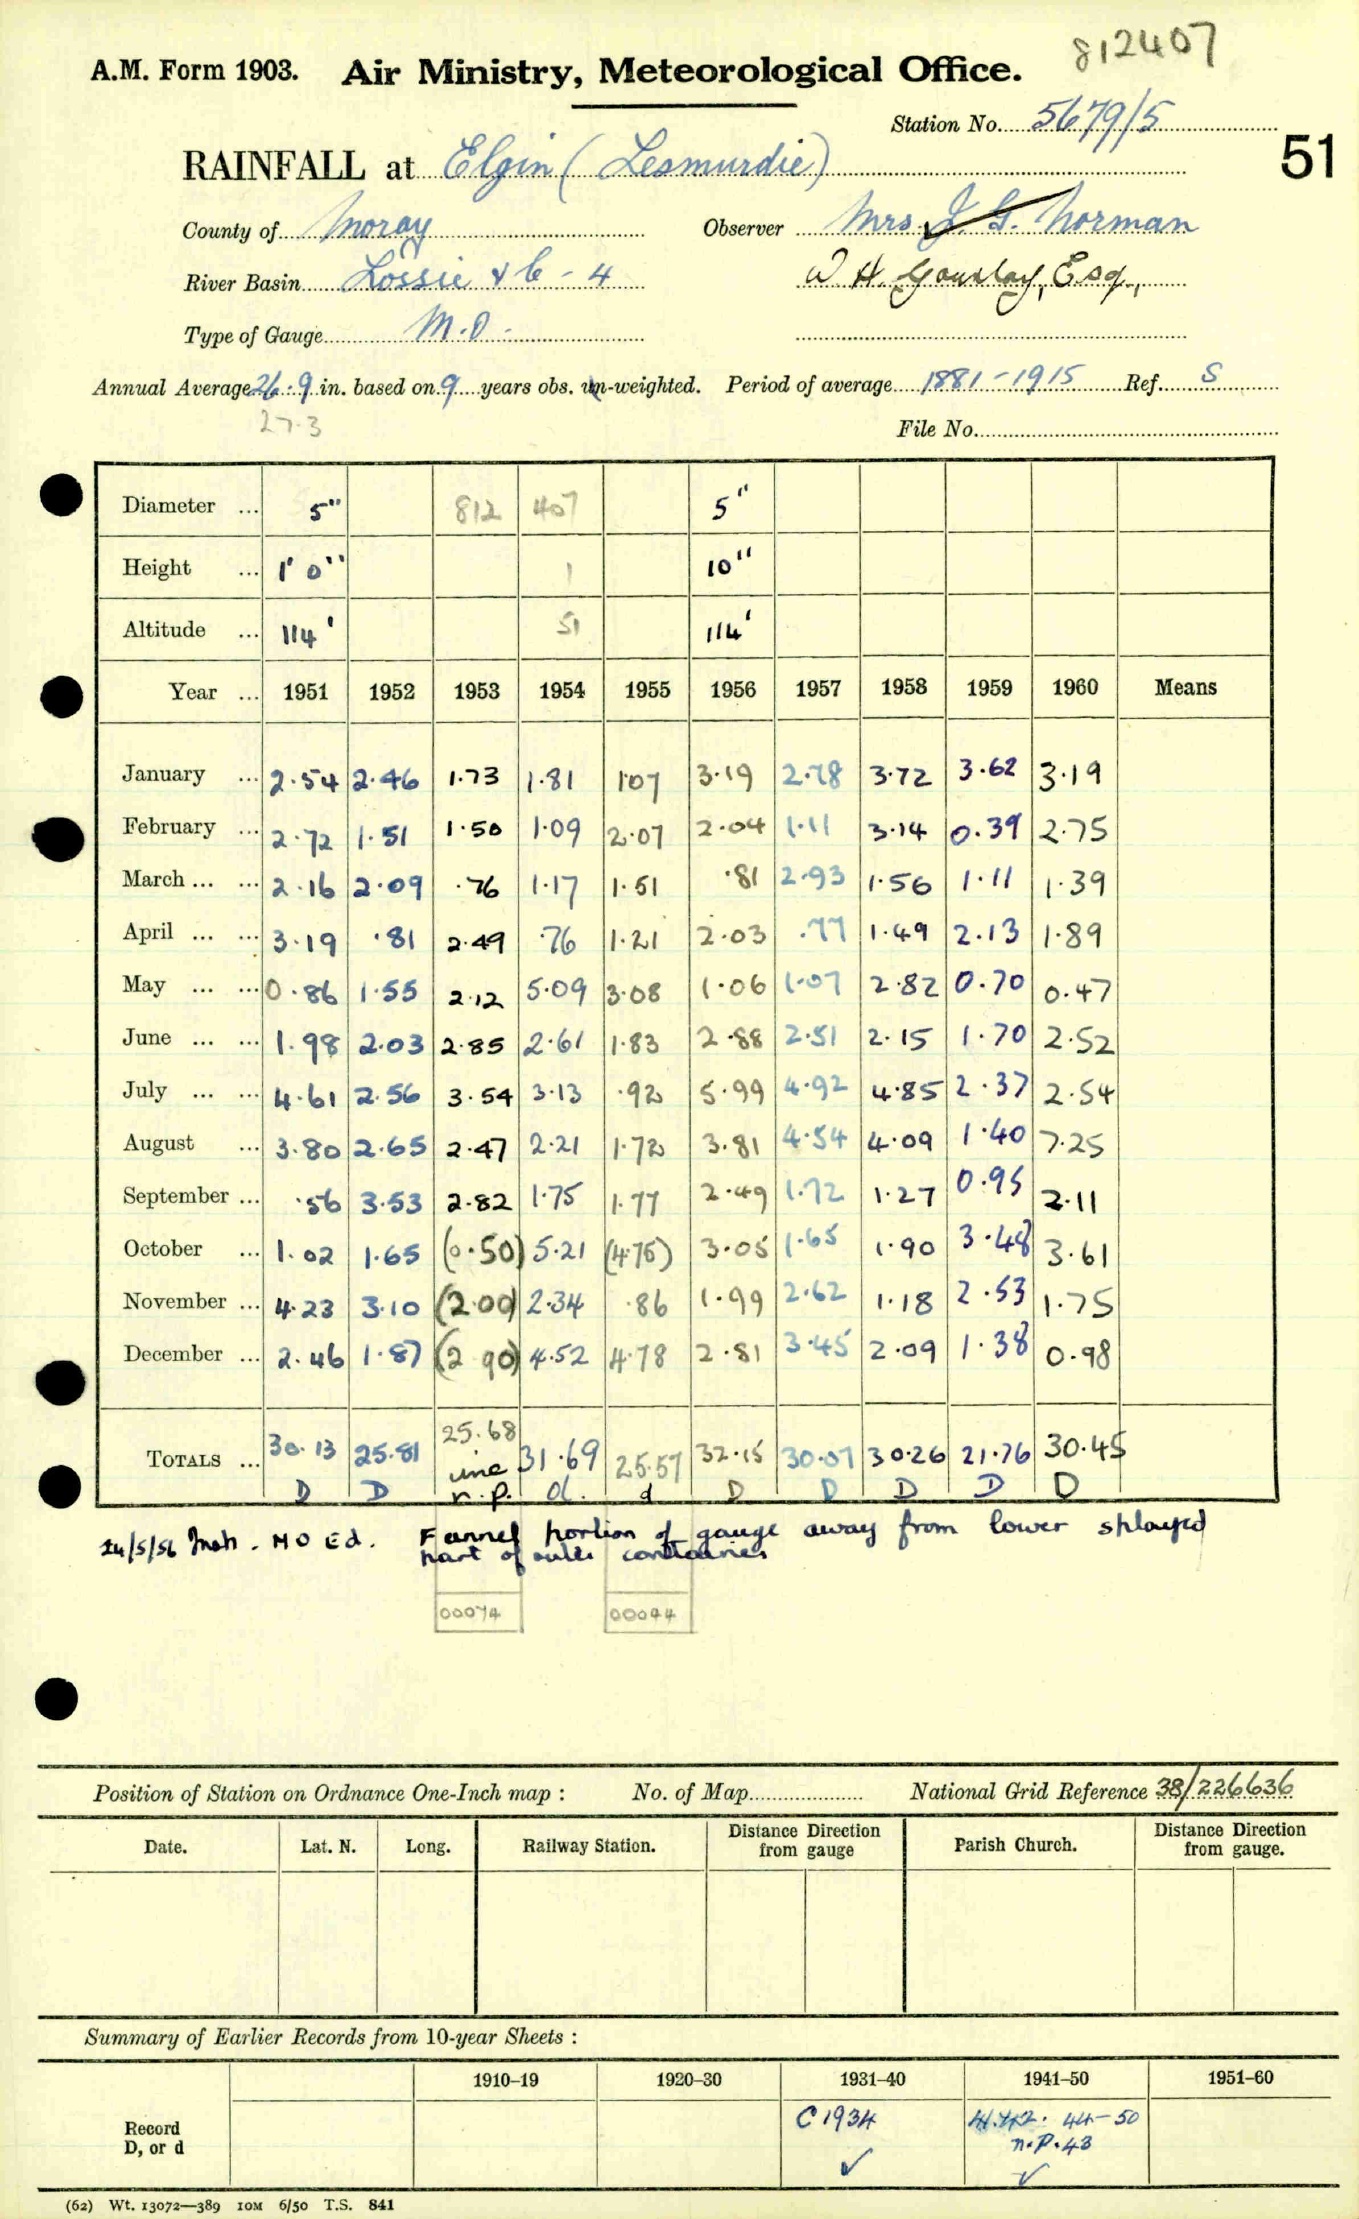 812407
A.M. Form 1903. Air Ministry, Meteorological Office.
Station No. 5679/5
51
RAINFALL at Elgin (Lesmurdie)
County of Moray Observer Mrs J. G. Norman
River Basin Lossie & C - 4 W. H. Gourlay, Esq.,
Type of Gauge M.O.
Annual Average 26.9 in. based on 9 years obs. un-weighted. Period of average 1881-1915 Ref. S
27.3 File No.
Diameter ... 5" 812 407 5"
Height ... 1' 0" 1 10"
Altitude ... 114' 51 114'
Year ... 1951 1952 1953 1954 1955 1956 1957 1958 1959 1960 Means
January ... 2.54 2.46 1.73 1.81 1.07 3.19 2.78 3.72 3.62 3.19
February ... 2.72 1.51 1.50 1.09 2.07 2.04 1.11 3.14 0.39 2.75
March ... ... 2.16 2.09 .76 1.17 1.51 .81 2.93 1.56 1.11 1.39
April ... ... 3.19 .81 2.49 .76 1.21 2.03 .77 1.49 2.13 1.89
May ... ... 0.86 1.55 2.12 5.09 3.08 1.06 1.07 2.82 0.70 0.47
June ... ... 1.98 2.03 2.85 2.61 1.83 2.88 2.51 2.15 1.70 2.52
July ... ... 4.61 2.56 3.54 3.13 .92 5.99 4.92 4.85 2.37 2.54
August ... 3.80 2.65 2.47 2.21 1.72 3.81 4.54 4.09 1.40 7.25
September ... .56 3.53 2.82 1.75 1.77 2.49 1.72 1.27 0.95 2.11
October ... 1.02 1.65 (0.50) 5.21 (4.75) 3.05 1.65 1.90 3.48 3.61
November ... 4.23 3.10 (2.00) 2.34 .86 1.99 2.62 1.18 2.53 1.75
December ... 2.46 1.87 (2.90) 4.52 4.78 2.81 3.45 2.09 1.38 0.98
TOTALS ... 30.13 25.81 25.68 31.69 25.57 32.15 30.07 30.26 21.76 30.45
inc
D D n.p. d. d D D D D D
24/5/56 Insp. MO Ed. Funnel portion of gauge away from lower splayed
part of outer container
00074 00044
Position of Station on Ordnance One-Inch map : No. of Map National Grid Reference 38/226636
Date. Lat. N. Long. Railway Station. Distance from gauge Direction Parish Church. Distance from gauge. Direction
Summary of Earlier Records from 10-year Sheets :
1910–19 1920–30 1931–40 1941–50 1951–60
Record D, or d C 1934 41.42. 44-50
n.p. 43
✓ ✓
(62) Wt. 13072—389 10M 6/50 T.S. 841